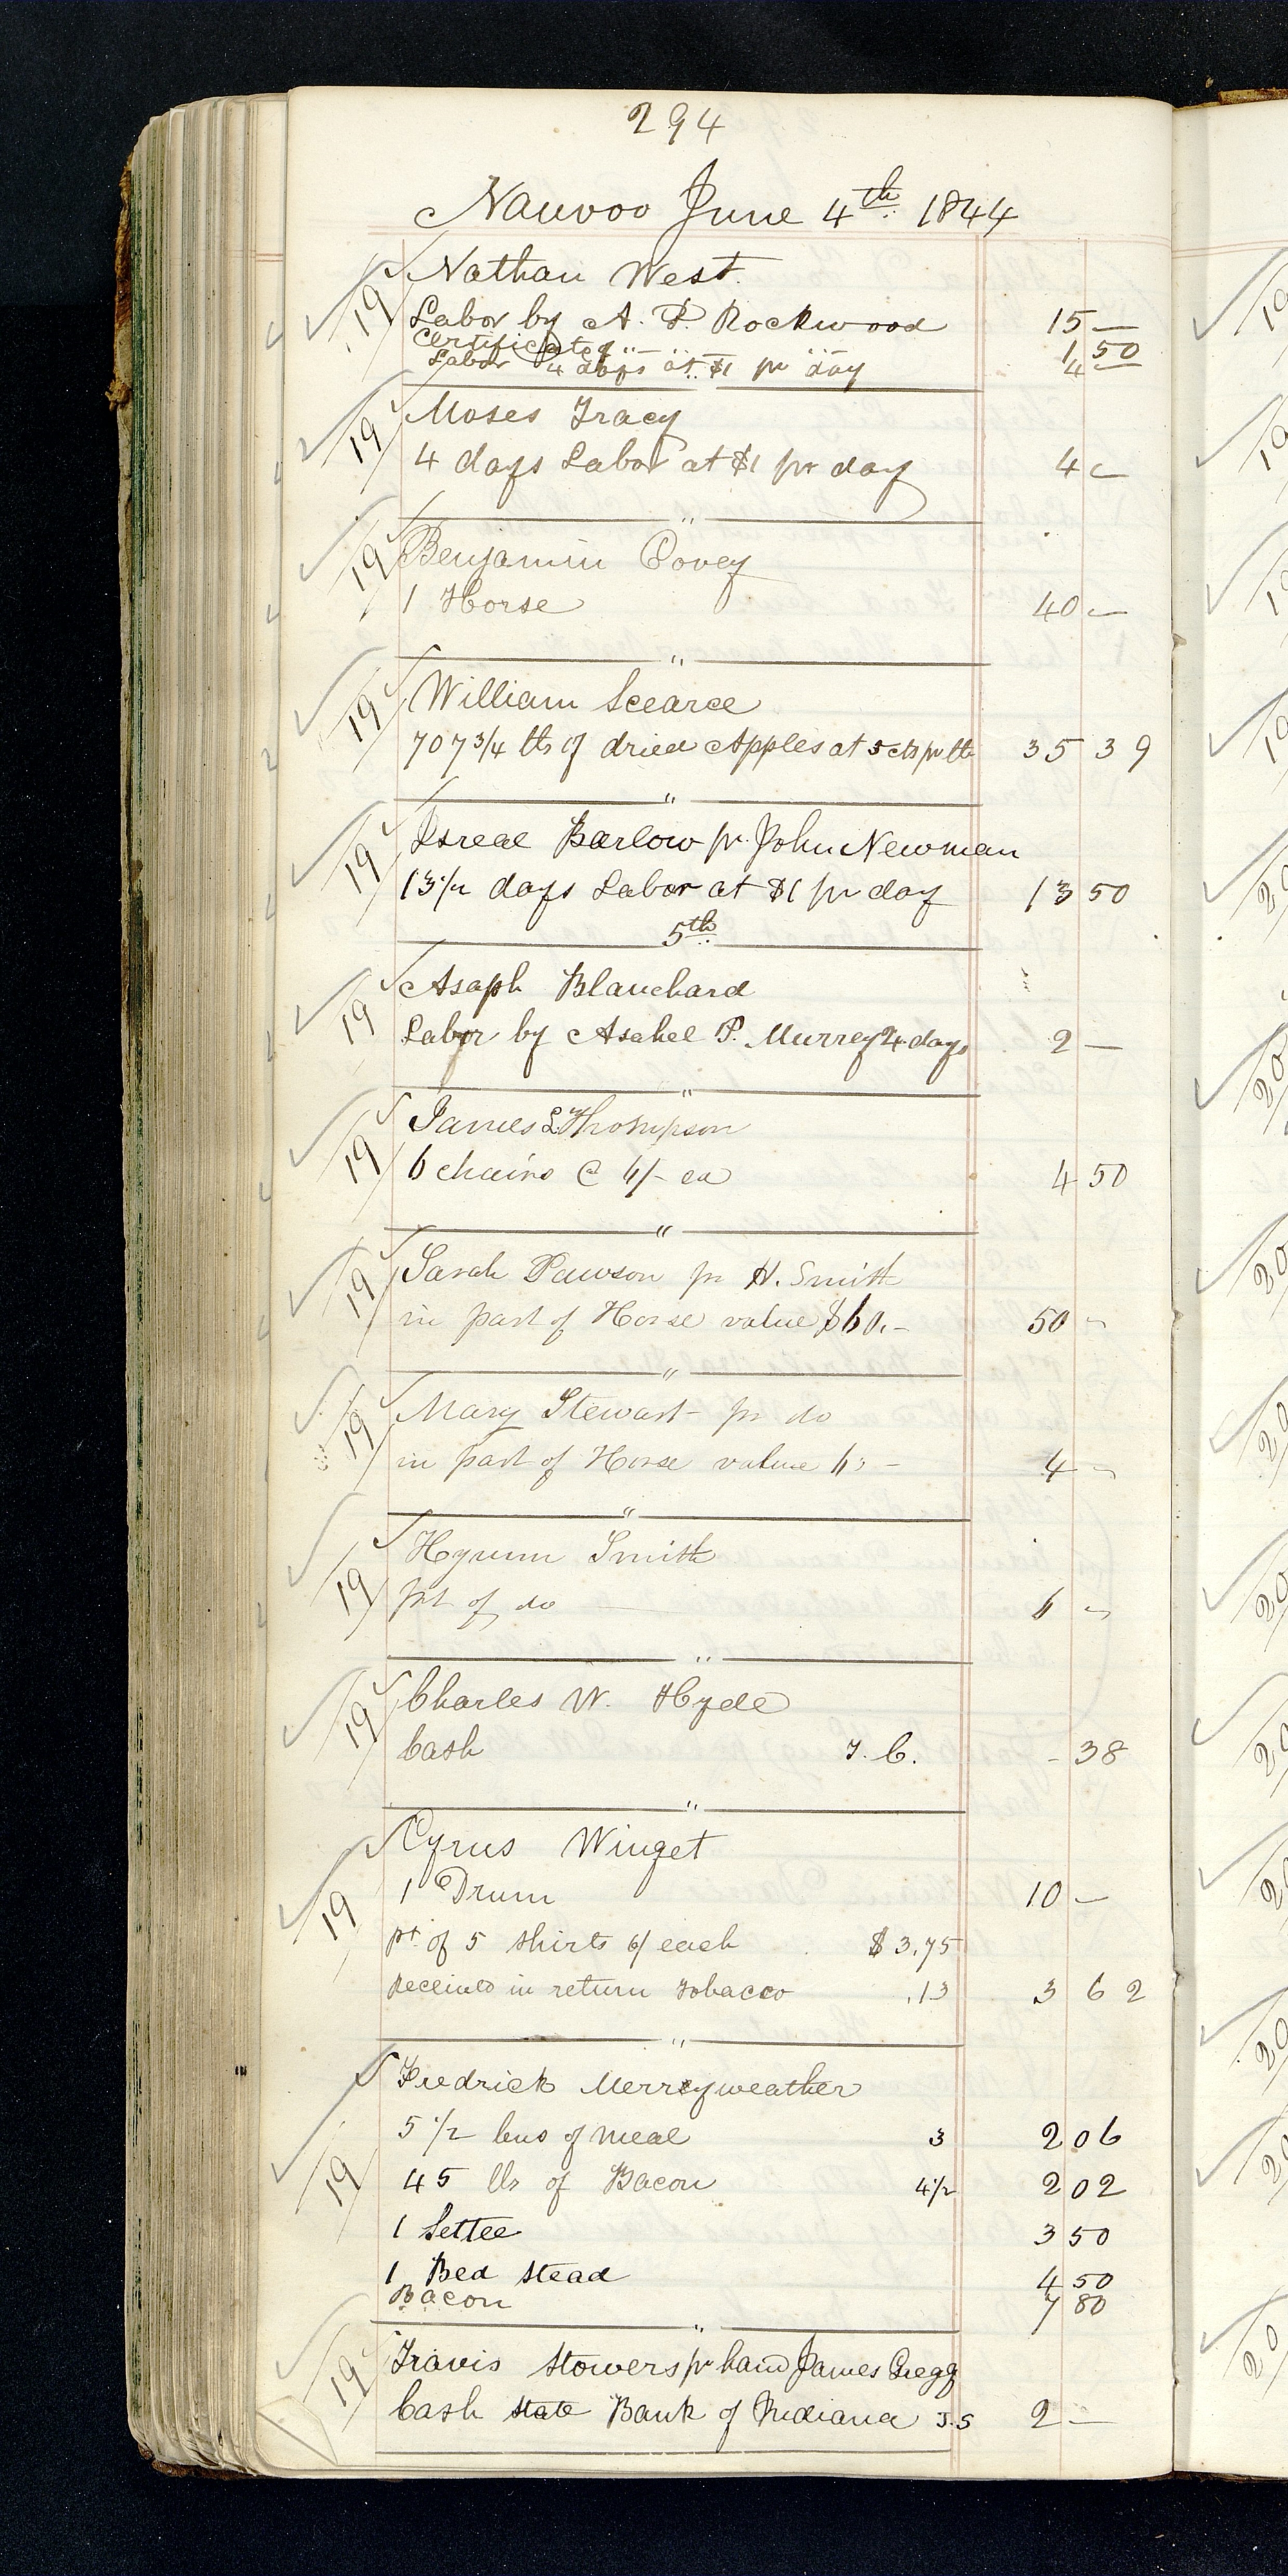 294
Nauvoo June 4th 1844
Nathan West.
19 Labor by A. P. Rockwood 15 —
Certificate of " " " " 1 50
Labor 4 days at $1 pr day 4 —
Moses Tracy
19 4 days Labor at $1 pr day 4 —
"
Benjamin Covey
19 1 Horse 40 —
"
William Scearce
19 707 3/4 lbs of dried Apples at 5 cts pr lb 35 39
"
Isreal Barlow pr John Newman
19 13 1/2 days Labor at $1 pr day 13 50
5th
Asaph Blanchard
19 Labor by Asahel P. Murrey 4 days 2 —
"
James L. Thompson
19 6 chairs @ 6/- ea 4 50
"
Sarah Pawson pr H. Smith
19 in part of Horse value $60.- 50 -
"
Mary Stewart pr do
19 in part of Horse value 60 - 4 -
"
Hyrum Smith
19 prt of do 6 -
"
Charles W. Hyde
19 Cash T. C. - 38
"
Cyrus Winget
19 1 Drum 10 —
pt. of 5 shirts 6/ each $3.75
received in return tobacco .13 3 62
"
Fredrick Merreyweather
5 1/2 bus of meal 3 2 06
19 45 lbs of Bacon 4 1/2 2 02
1 Settee 3 50
1 Bed stead 4 50
Bacon 7 80
"
Travis Stowers pr hand James Gregg
19 Cash state Bank of Indiana J.S 2 —
19
19
19
19
20
20
20
20
20
20
20
20
20
20
20